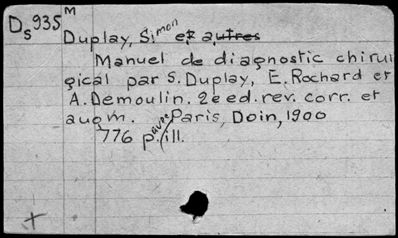 M
Ds 935
Duplay, Simon et autres
Manuel de diagnostic chirur
gical par S. Duplay, E. Rochard et
A. Demoulin. 2e ed. rev. corr. et
augm. Paris, Doin, 1900
776 p. avec ill.